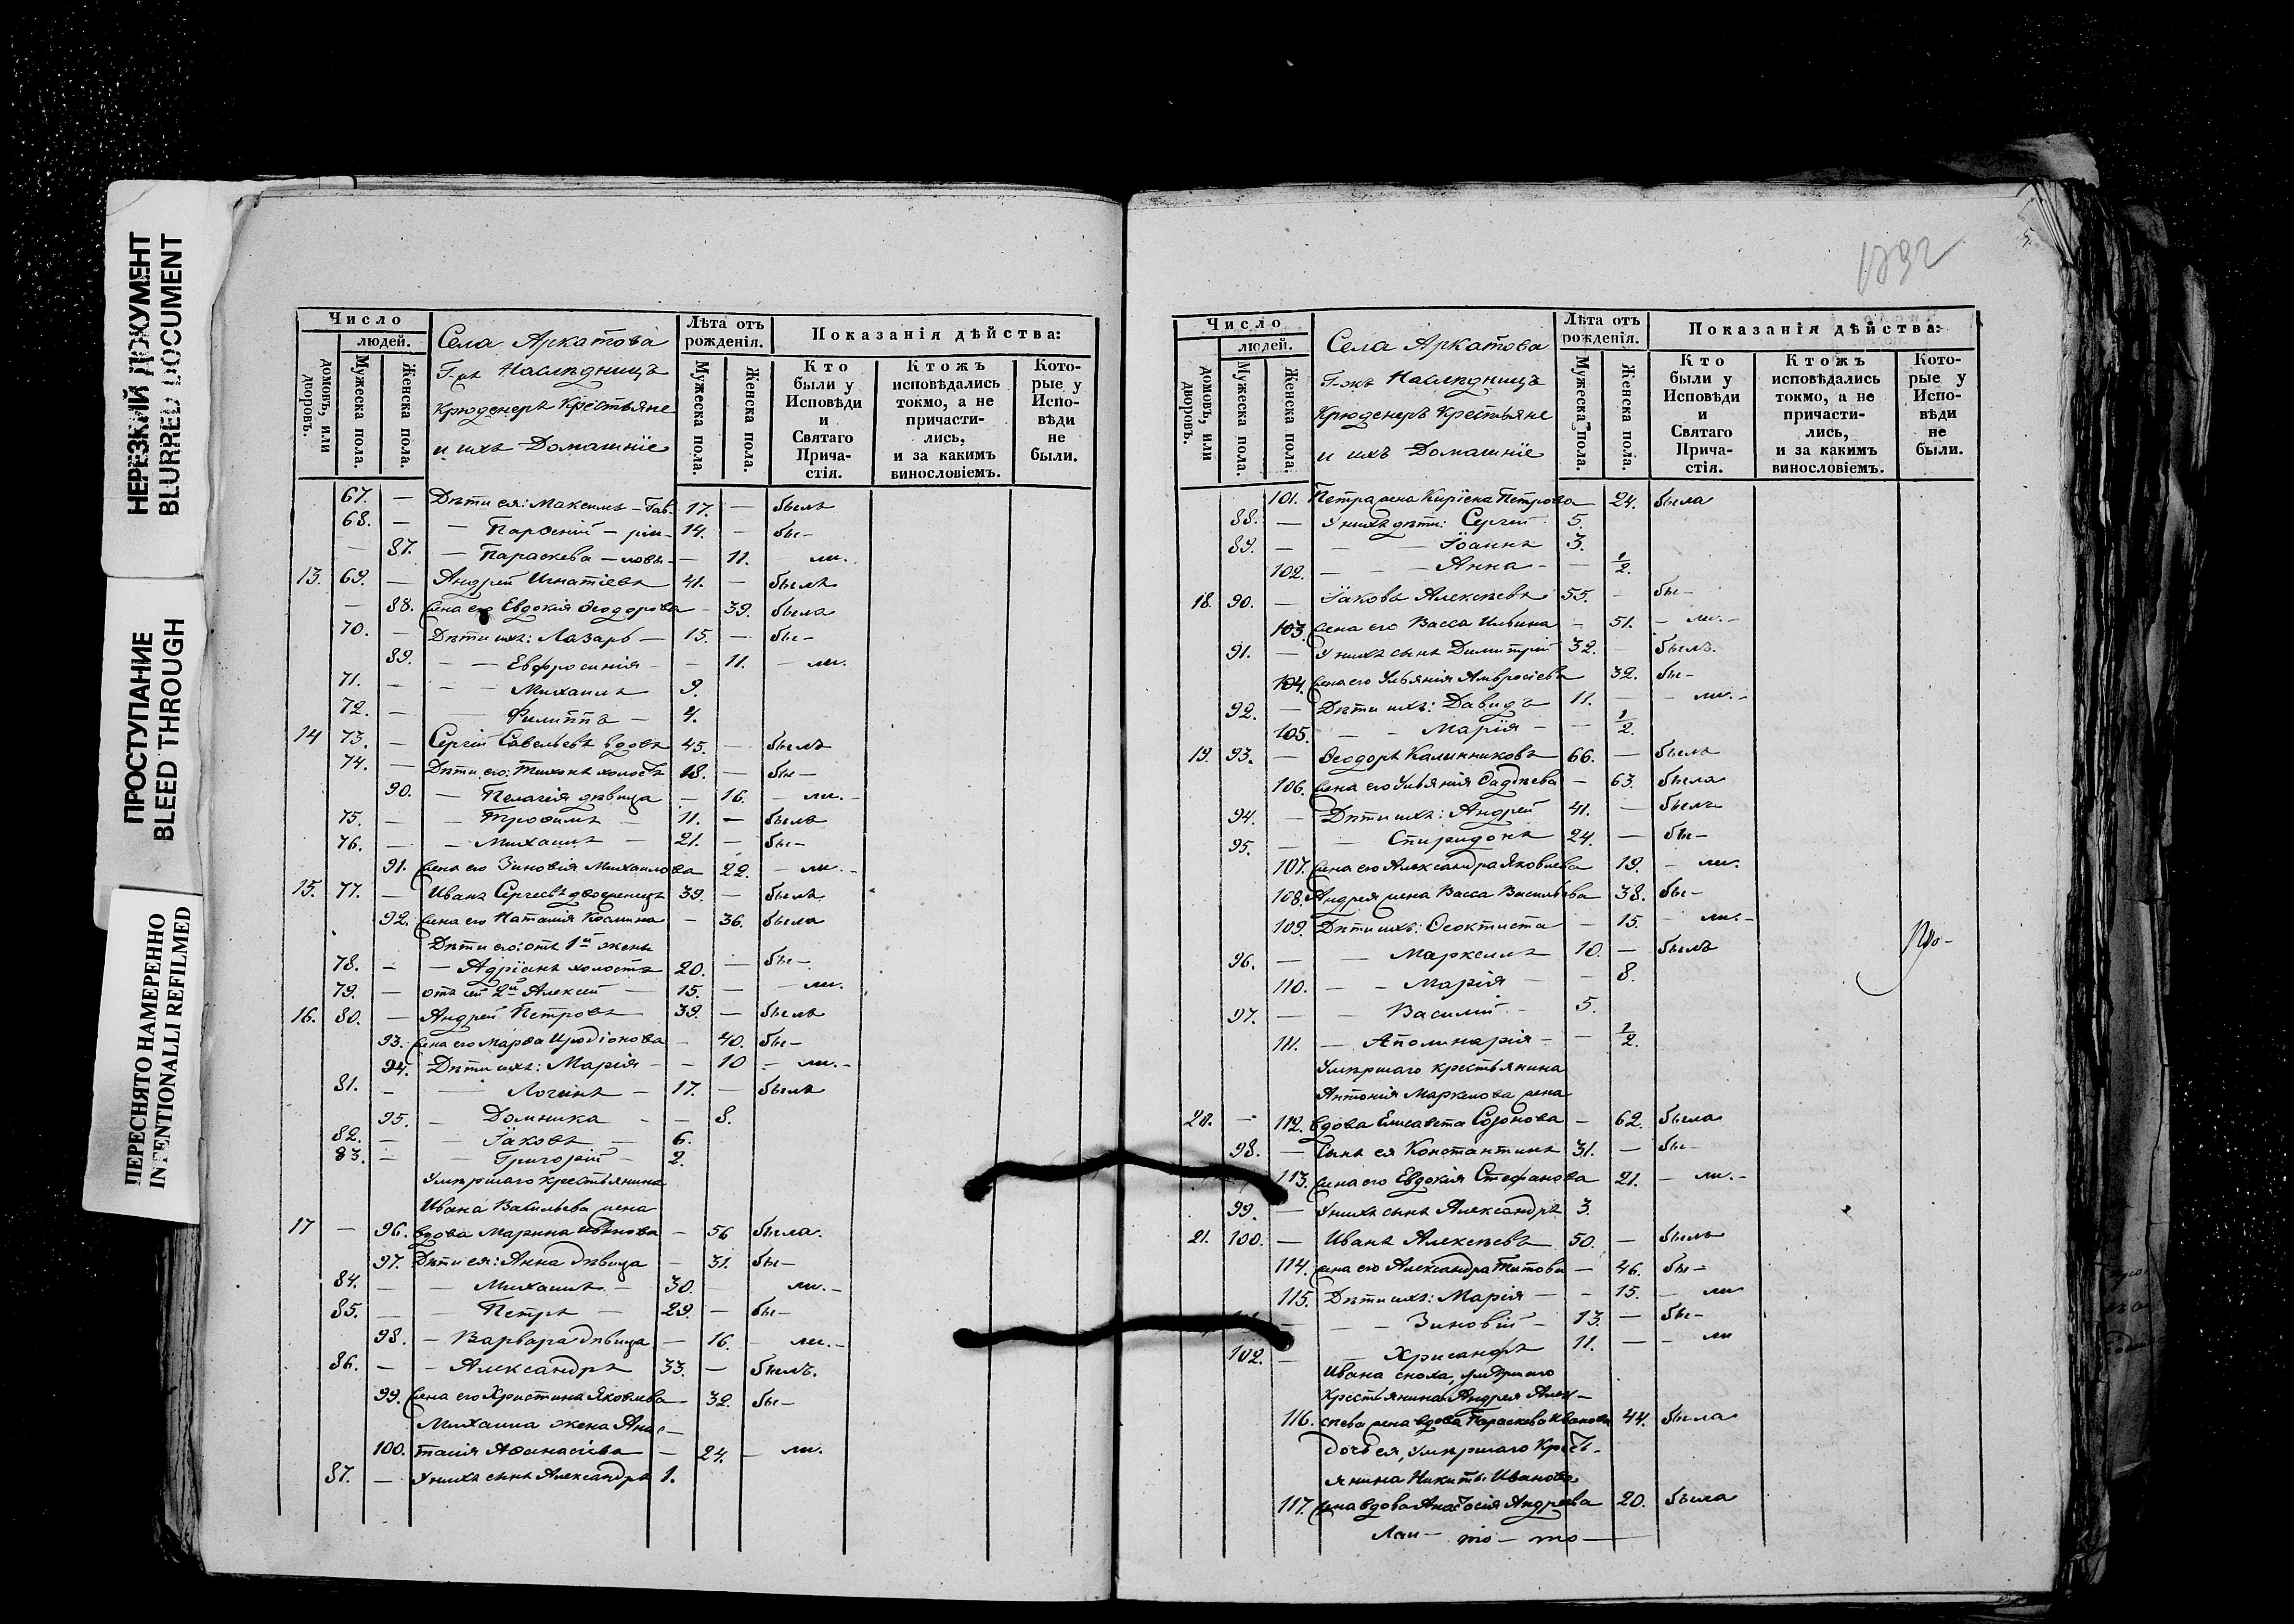 НЕРЕЗКИЙ ДОКУМЕНТ
BLURRED DOCUMENT
ПРОСТУПАНИЕ
BLEED THROUGH
ПЕРЕСНЯТО НАМЕРЕННО
INTENTIONALLI REFILMED
Число
людей.
домовъ, или дворовъ.
Мужеска пола.
Женска пола.
Села Аркатова
Г-жъ Наслѣдницъ
Крюденеръ Крестьяне
и ихъ Домашніе
Лѣта отъ рожденія.
Мужеска пола.
Женска пола.
Показанія дѣйства:
Кто были у Исповѣди и Святаго Причастія.
Ктожъ исповѣдались токмо, а не причастились, и за какимъ винословіемъ.
Которые у Исповѣди не были.
67. — Дѣти ея: Максимъ — Гав- 17. — былъ
68. — — Парѳеній — рiи- 14. — бы-
— 87. — Параскева — ловы — 11. ли.
13. 69. — Андрей Игнатіевъ 41. — былъ
— 88. жена его Евдокія Ѳеодорова — 39. была
70. — Дѣти ихъ: Лазарь — 15. — бы-
89. — — Евфросинія — — 11. — ли.
71. — — — Михаилъ 9.
72. — — Филиппъ — 4.
14 73. — Сергій Савельевъ вдовъ 45. — былъ
74. — Дѣти его: Тихонъ холостъ 18. — бы-
90. — Пелагія дѣвица — 16. — ли.-
75. — — Трофимъ — 11. — былъ
76. — — Михаилъ — 21. — бы-
91. жена его Зиновія Михаилова 22. — ли.-
15. 77. — Иванъ Сергеевъ двоеженецъ 39. — былъ
92. жена его Наталія Космина — 36. была
Дѣти его: отъ 1й жены
78. — — Адріанъ холостъ 20. — бы-
79. — отъ сей 2й Алексій — 15. — — ли.
16. 80. — Андрей Петровъ 39. — былъ
93. жена его Марѳа Иродіонова — 40. бы-
94. Дѣти ихъ: Марія — — 10 — ли.-
81. — — Логинъ — 17. — былъ
95. — Домника — — 8.
82. — — Іаковъ — 6.
83. — — Григорій — 2.
Умершаго крестьянина
Ивана Васильева жена
17 — 96. вдова Марина Иванова — 56 была.
97. Дѣти ея: Анна дѣвица — 31. бы-
84. — — Михаилъ — 30. ли.-
85. — — Петръ — 29. — бы-
98. — Варвара дѣвица — 16. — ли.-
86. — — Александръ 33. — былъ.
99. жена его Христина Яковлева 32. бы-
Михаила жена Анас-
100. тасія Аѳанасіева — 24. — ли.
87. — У нихъ сынъ Александръ 1.
Число
людей.
домовъ, или дворовъ.
Мужеска пола.
Женска пола.
Села Аркатова
Г-жъ Наслѣдницъ
Крюденеръ Крестьяне
и ихъ Домашніе
Лѣта отъ рожденія.
Мужеска пола.
Женска пола.
Показанія дѣйства:
Кто были у Исповѣди и Святаго Причастія.
Ктожъ исповѣдались токмо, а не причастились, и за какимъ винословіемъ.
Которые у Исповѣди не были.
101. Петра жена Кирiена Петрова 24. была
88. — У нихъ дѣти: Сергій 5.
89. — — — Іоаннъ 3.
102. — — — Анна — — 1/2.
18. 90. — Іаковъ Алексѣевъ 55. — бы-
103. жена его Васса Ильина — 51. — ли.-
91. — У нихъ сынъ Димитрій 32. — былъ.
104. жена его Ульянія Амвросіева 32. бы-
92. — Дѣти ихъ: Давидъ 11. — — ли.-
105. — — Марія — — 1/2.
19. 93. — Ѳеодоръ Калинниковъ 66. — былъ
106. жена его Ульянія Ѳаддѣева — 63. была
94. — Дѣти ихъ: Андрей 41. — былъ
95. — — Спиридонъ 24. — бы-
107. жена его Александра Яковлева 19. — ли.
108. Андрея жена Васса Васильева 38. бы-
109. Дѣти ихъ: Ѳеоктиста — 15. — ли.-
96. — — Маркеллъ 10. — былъ
110. — — Марія — — 8.
97. — — Василій — 5.
111. — Аполинарія — — 1/2.
Умершаго крестьянина
Антонія Маркелова жена
20. — 112. вдова Елисавета Созонова — 62. была
98. — Сынъ ея Константинъ 31. — бы-
113. жена его Евдокія Стефанова 21. — ли.-
99. — У нихъ сынъ Александръ 3.
21. 100. — Иванъ Алексѣевъ 50. — былъ
114. жена его Александра Титова — 46. бы-
115. Дѣти ихъ: Марія — — 15. — ли
— — — Зиновій — 13. — бы-
102. — — Хрисанфъ 11. — — ли
Ивана сноха, умершаго
Крестьянина Андрея Алек-
116. сѣева жена вдова Параскева Иванова 44. была
дочь ея, умершаго Крестъ-
янина Никиты Иванова
117. жена вдова Анастасія Андреева 20. была